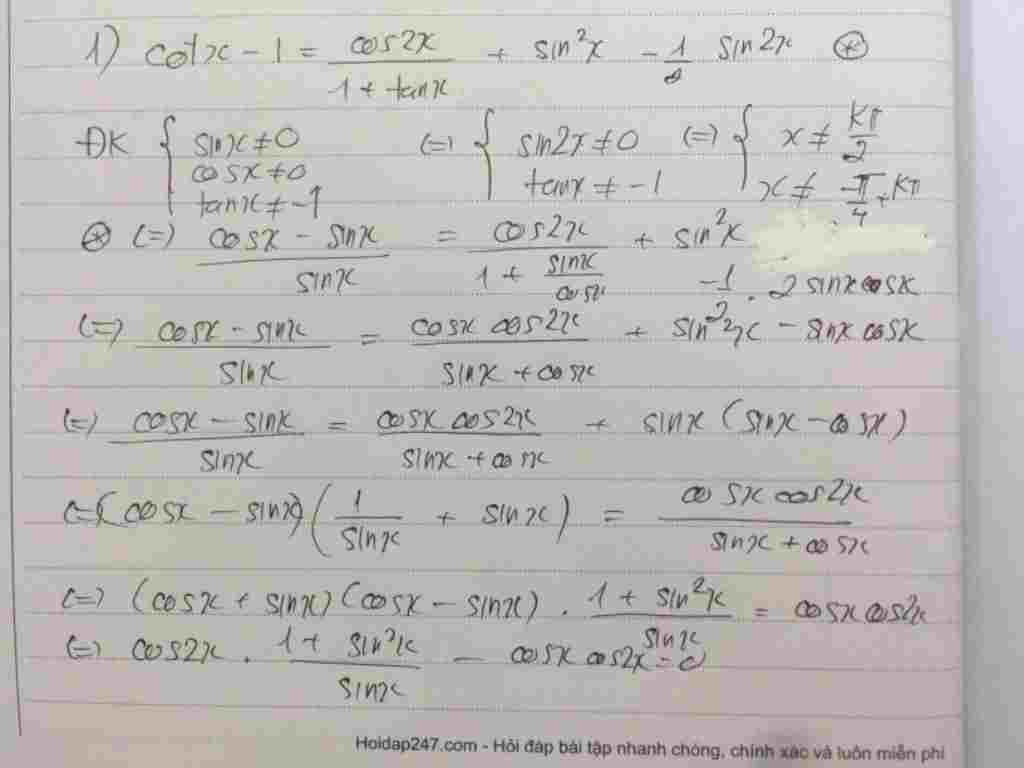 1) cotx - 1 = cos2x / (1 + tanx) + sin²x - 1/2 sin2x ⊛
ĐK { sinx ≠ 0 ; cosx ≠ 0 ; tanx ≠ -1 (=) { sin2x ≠ 0 ; tanx ≠ -1 (=) { x ≠ kπ/2 ; x ≠ -π/4 + kπ
⊛ (=) (cosx - sinx) / sinx = cos2x / (1 + sinx/cosx) + sin²x - 1/2 . 2 sinx cosx
(=) (cosx - sinx) / sinx = cosx cos2x / (sinx + cosx) + sin²x - sinx cosx
(=) (cosx - sinx) / sinx = cosx cos2x / (sinx + cosx) + sinx (sinx - cosx)
(=) (cosx - sinx) (1/sinx + sinx) = cosx cos2x / (sinx + cosx)
(=) (cosx + sinx) (cosx - sinx) . (1 + sin²x) / sinx = cosx cos2x
(=) cos2x . (1 + sin²x) / sinx - cosx cos2x = 0
Hoidap247.com - Hỏi đáp bài tập nhanh chóng, chính xác và luôn miễn phí